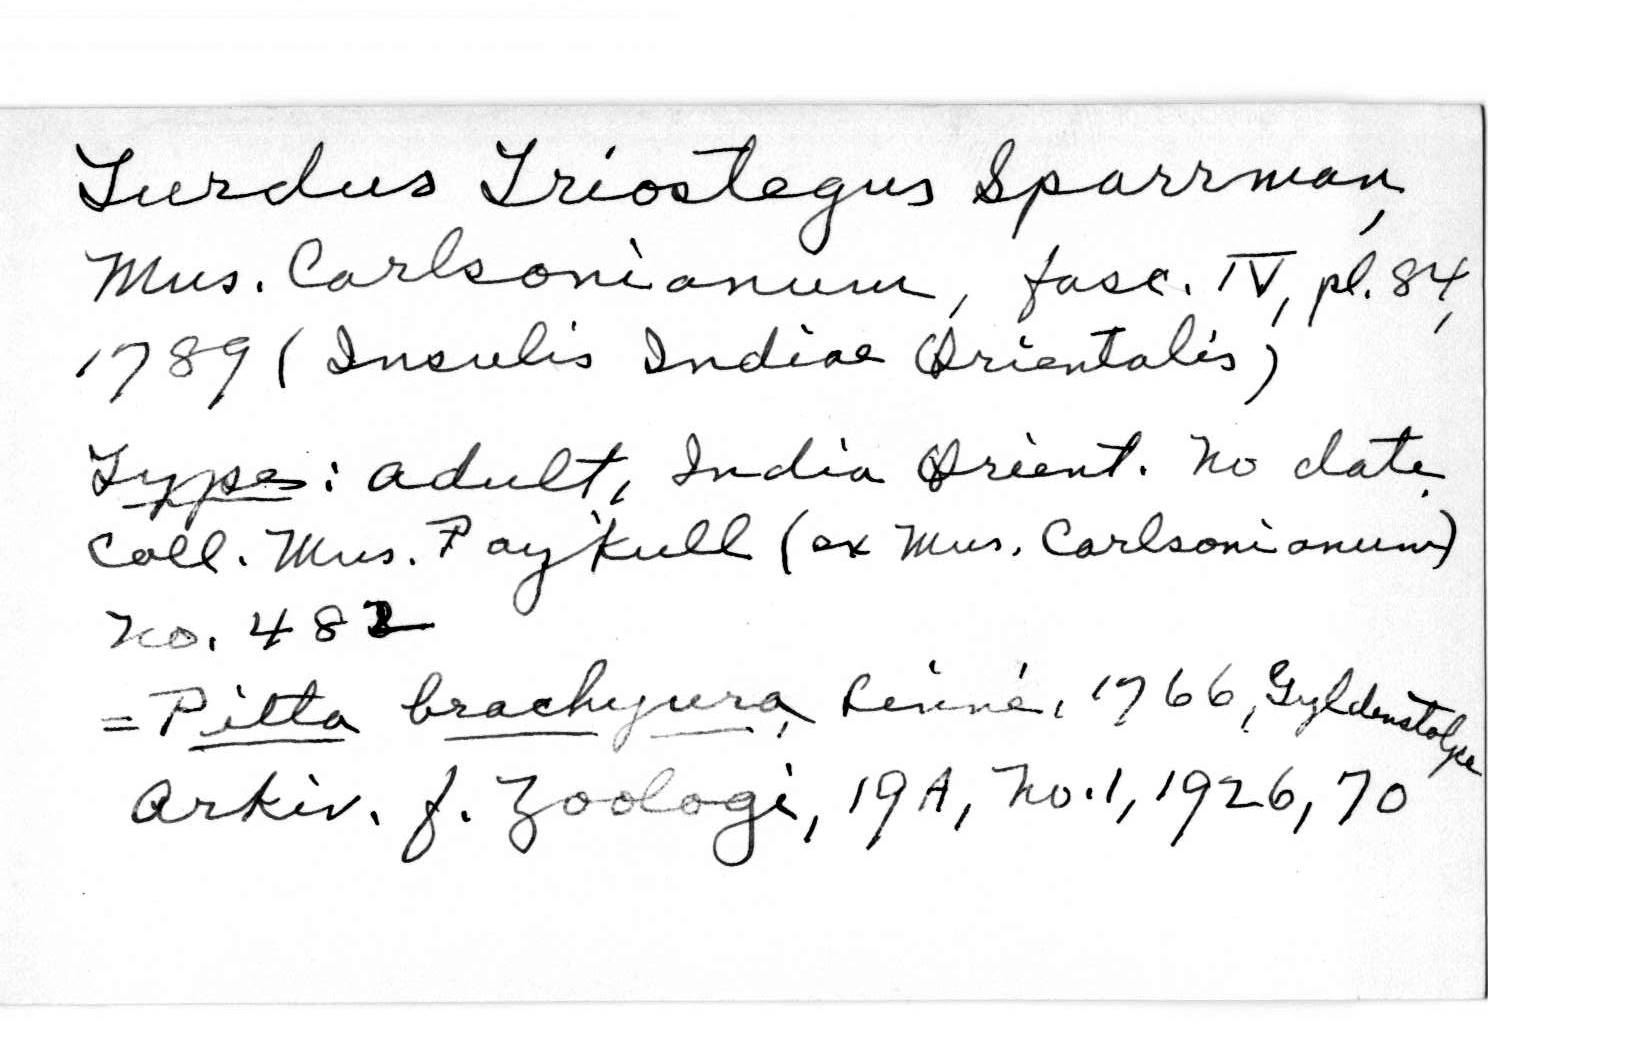 Turdus Triostegus Sparrman,
Mus. Carlsonianum, fasc. IV, pl. 84,
1789 (Insulis Indiae Orientalis)
Type: adult, India Orient. No date.
Coll. Mus. Paykull (ex Mus. Carlsonianum)
No. 482
= Pitta brachyura, Linné, 1766, Gyldenstolpe
Arkiv. f. Zoologi, 19A, No. 1, 1926, 70